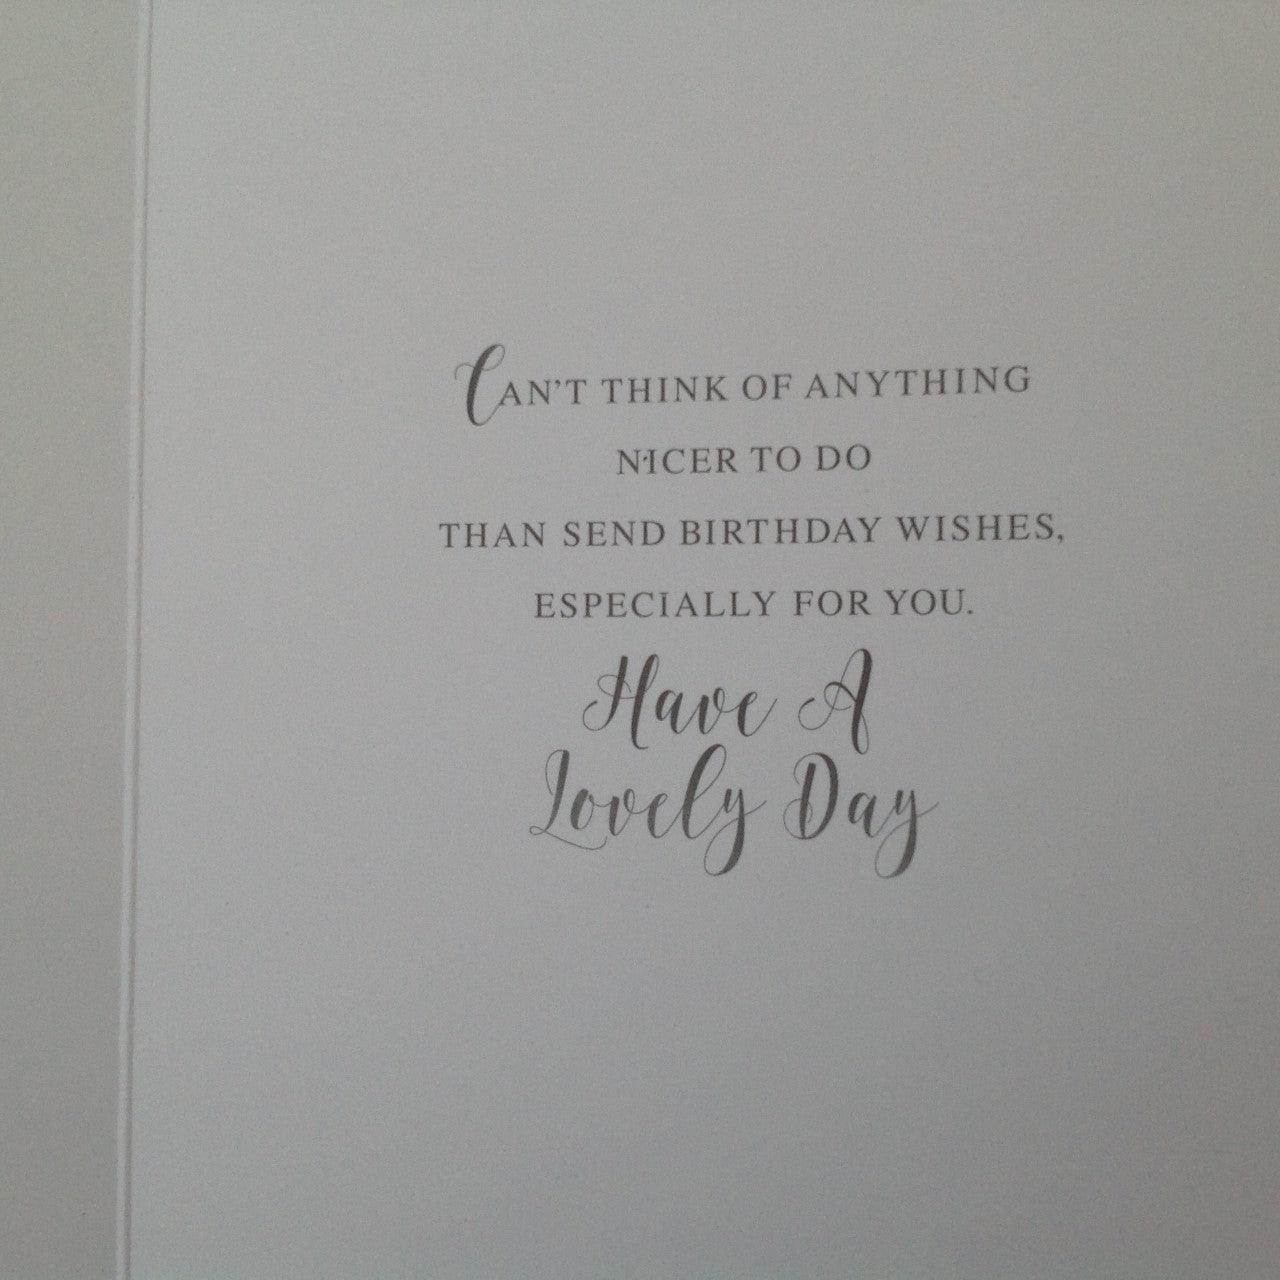 CAN'T THINK OF ANYTHING
NICER TO DO
THAN SEND BIRTHDAY WISHES,
ESPECIALLY FOR YOU.
Have A
Lovely Day